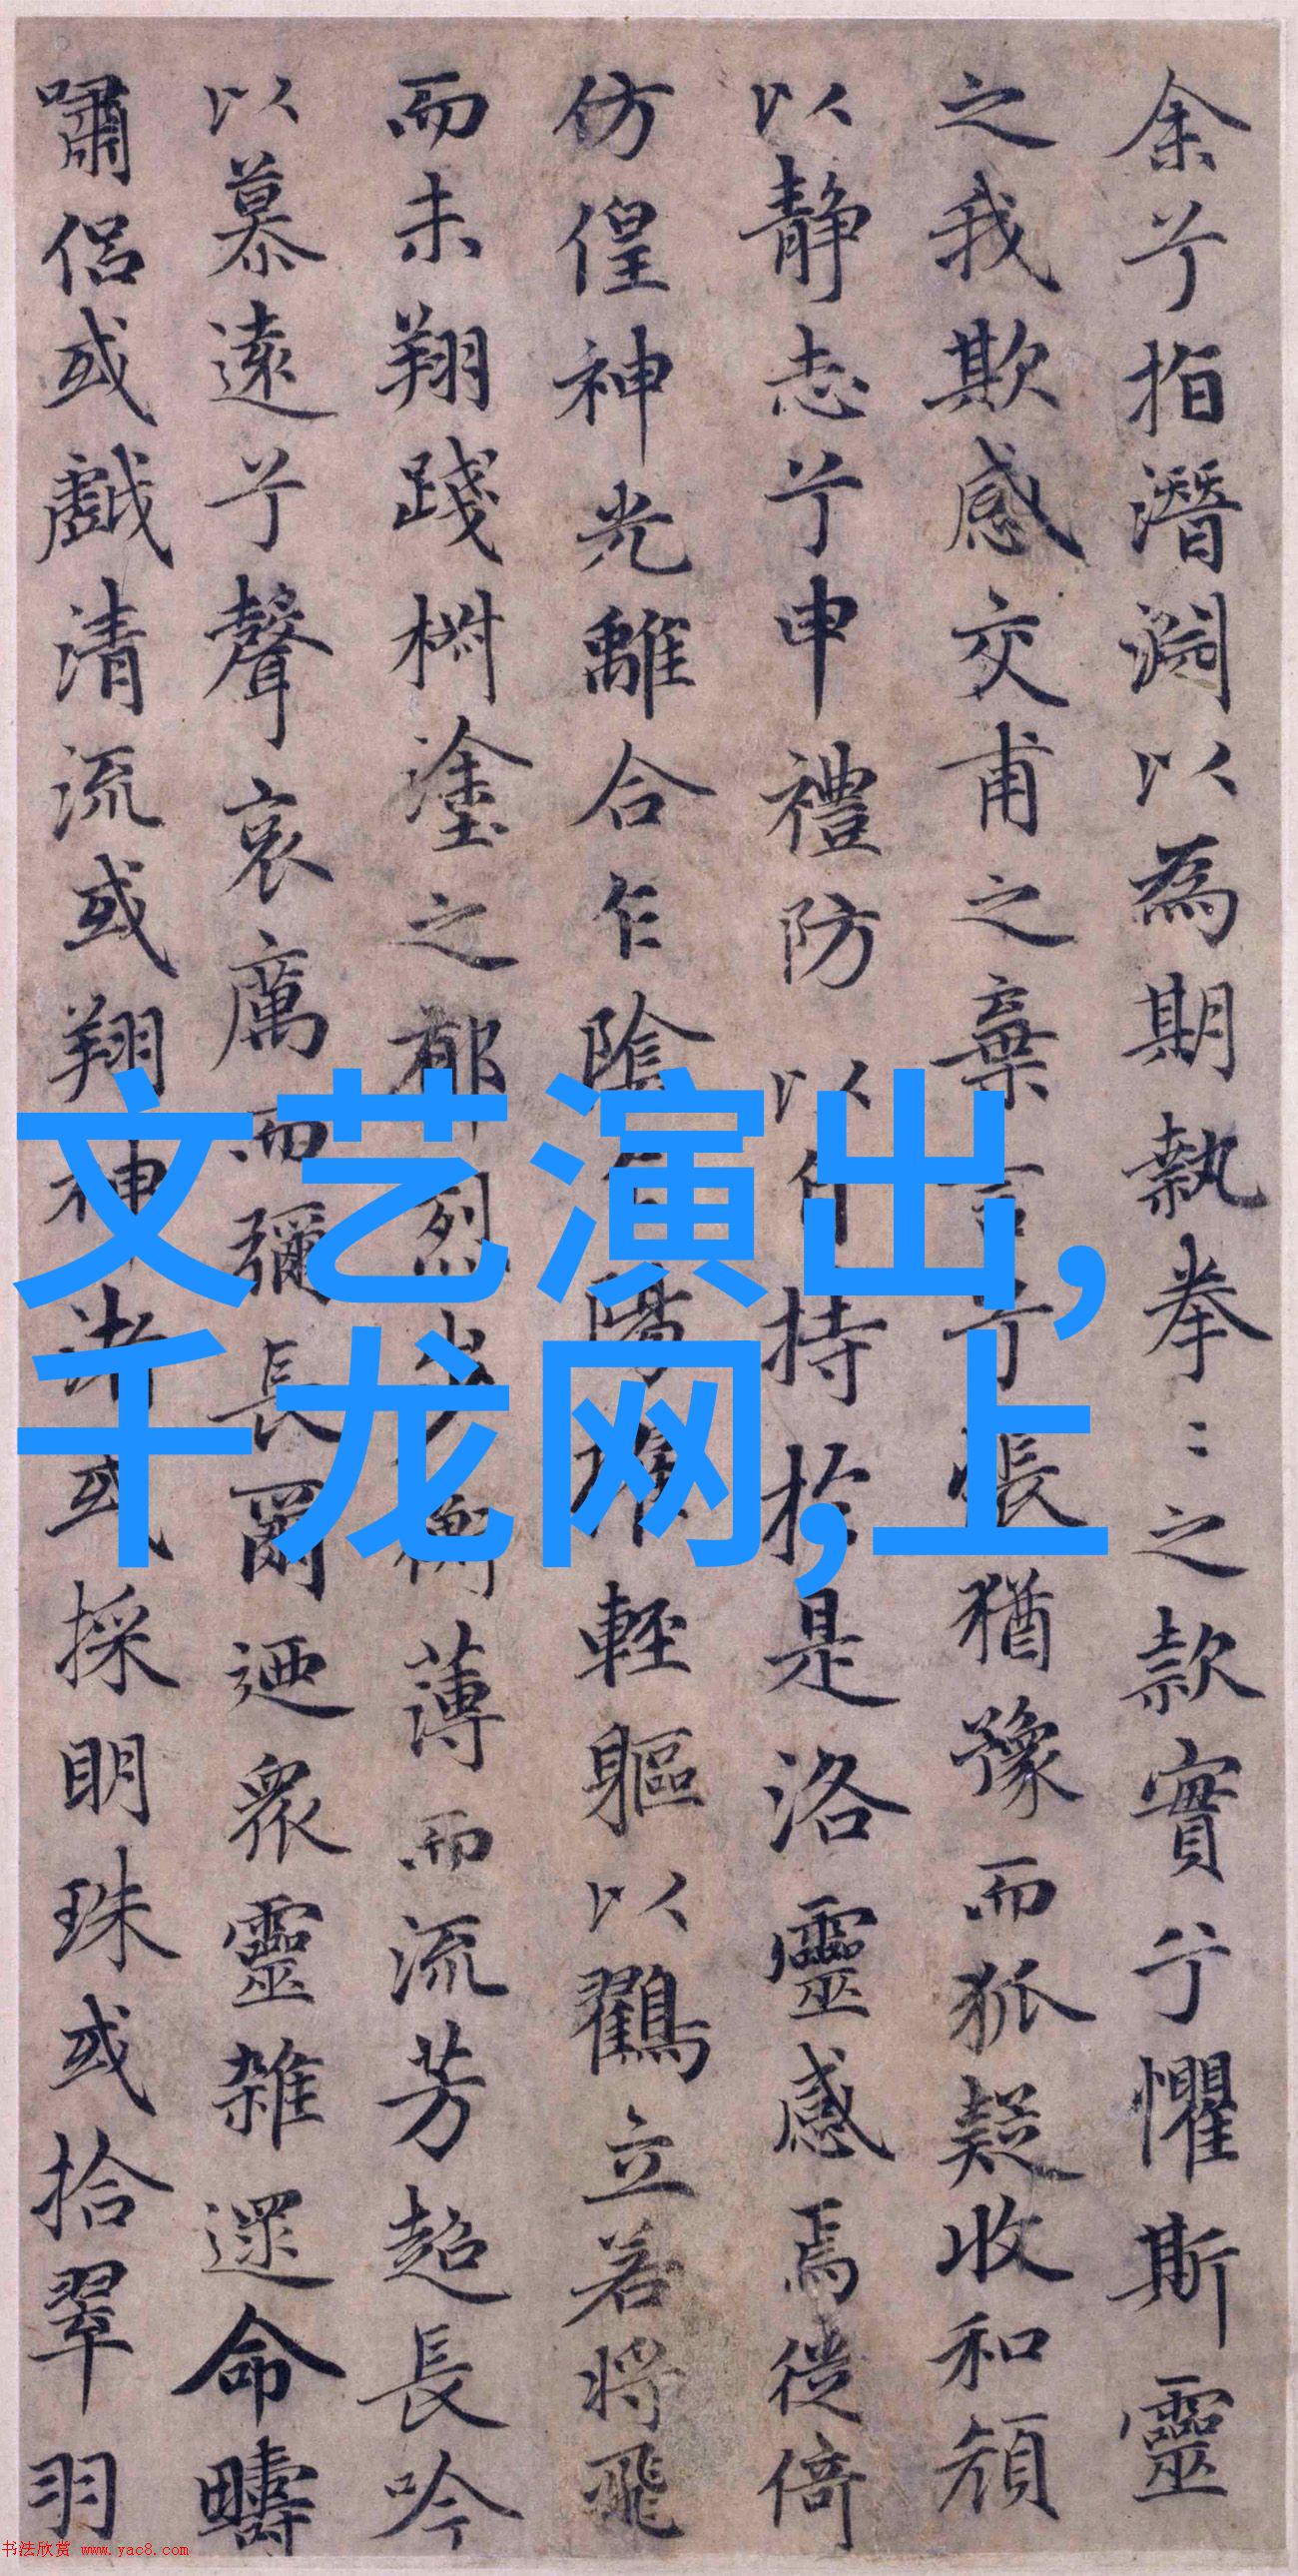 余兮指潛淵以為期執拳〻之款實兮懼斯靈
之我欺感交甫之棄言兮悵猶豫而狐疑收和顔
以靜志兮申禮防以自持於是洛靈感焉徙倚
仿偟神光離合乍陰乍陽竦輕軀以鶴立若將飛
而未翔踐椒塗之郁烈步蘅薄而流芳超長吟
以慕遠兮聲哀厲而彌長爾迺衆靈雜遝命疇
嘯侶或戲清流或翔神渚或採明珠或拾翠羽
文艺演出,
千龙网,上
书法欣赏 www.yac8.com